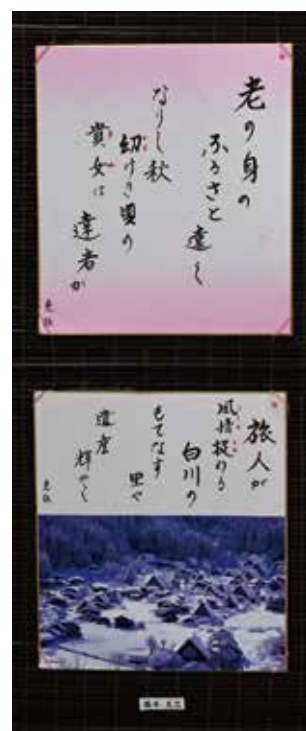 老の身の
ふるさと遠く
なりし秋
幼けき頃の
貴女は達者か
旅人が
風情提わる
白川の
もてなす
里や
遺産
輝やく